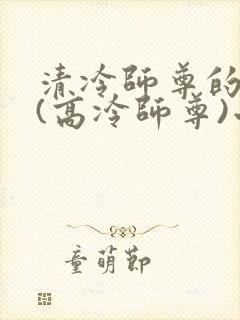 清冷師尊的
(高冷師尊)
童萌節